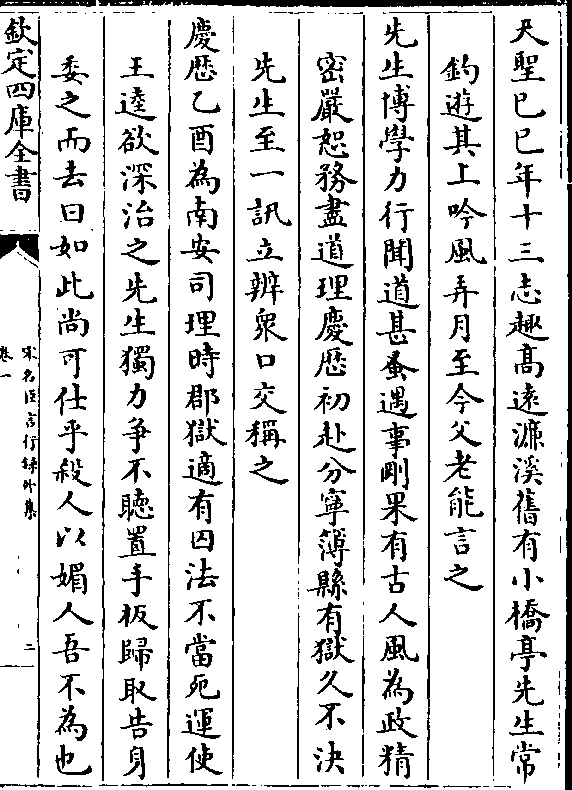 天聖已巳年十三志趣髙逺濂溪舊有小橋亭先生常
釣遊其上吟風弄月至今父老能言之
先生博學力行聞道甚蚤遇事剛果有古人風為政精
宻嚴恕務盡道理慶歴初赴分寧簿縣有獄久不決
先生至一訊立辨衆口交稱之
慶歴乙酉為南安司理時郡獄適有囚法不當死運使
王逵欲深治之先生獨力争不聴置手板歸取告身
委之而去曰如此尚可仕乎殺人以媚人吾不為也
欽定四庫全書
宋名臣言行録外集
卷一
二